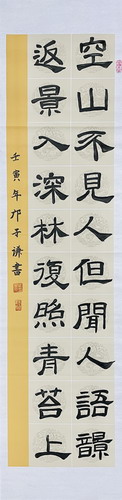 空山不見人但聞人語韻
返景入深林復照青苔上
壬寅年邝子谦書